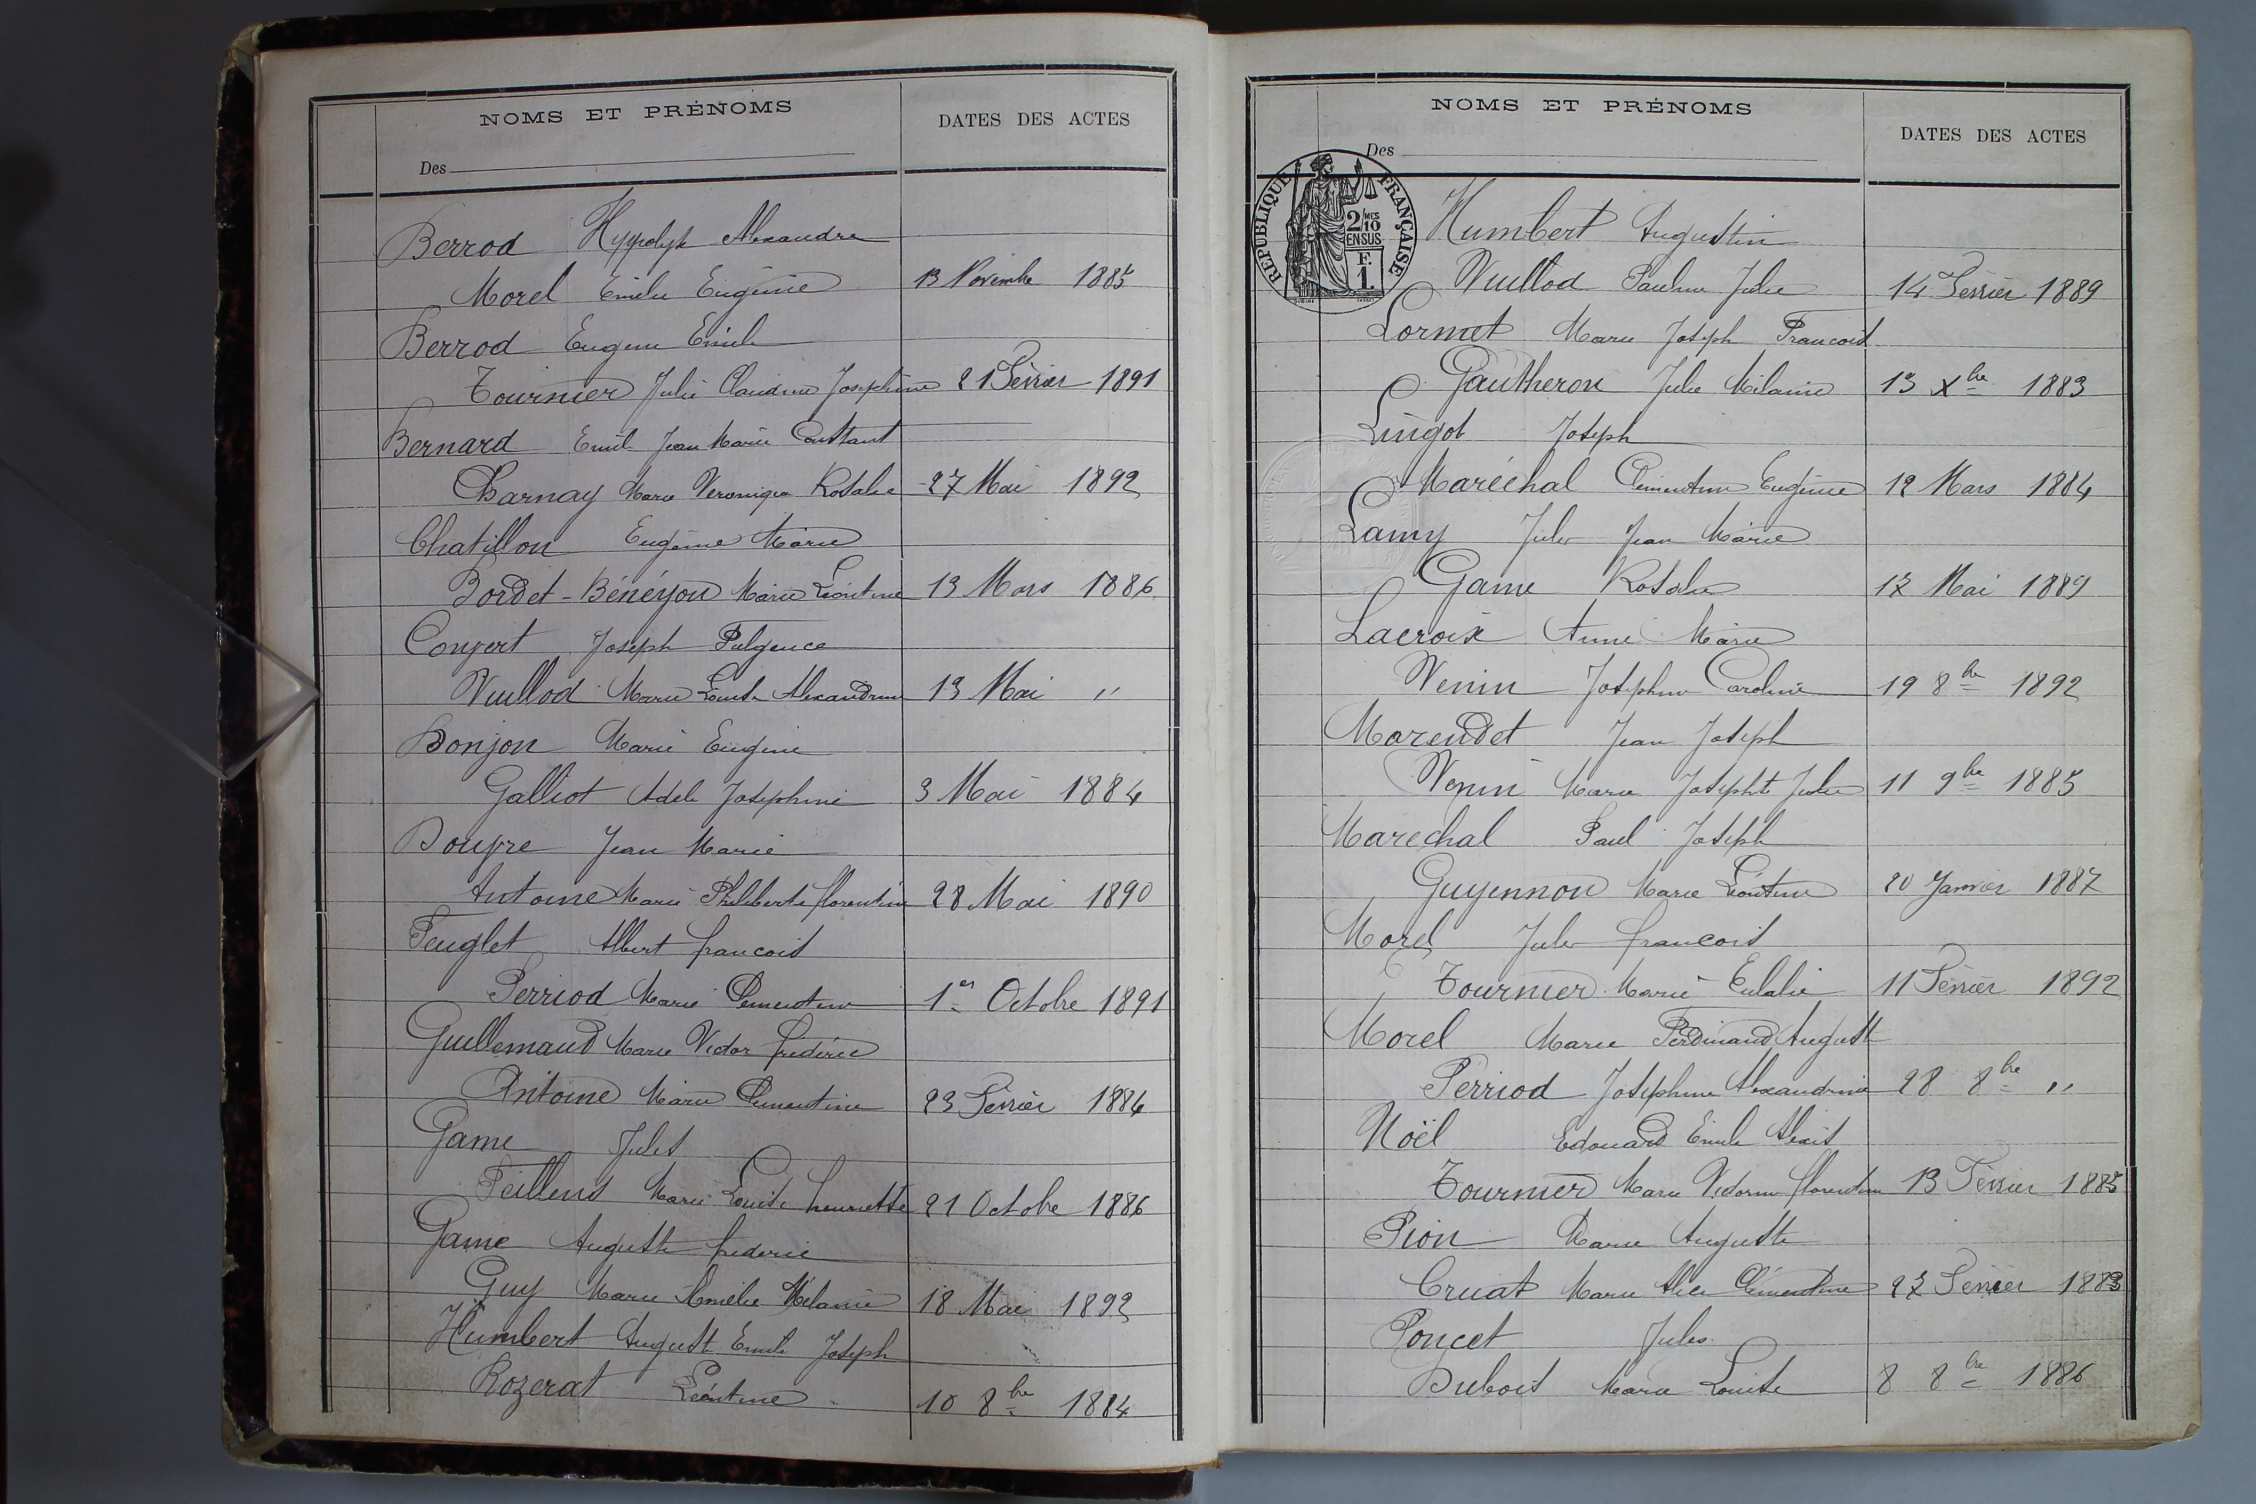 NOMS ET PRÉNOMS
DATES DES ACTES
Des
Berrod Hyppolyte Alexandre
Morel Emelie Eugénie 13 Novembre 1885
Berrod Eugène Emile
Tournier Julie Claudine Joséphine 21 Février 1891
Bernard Emile Jean Marie Constant
Charnay Marie Veronique Rosalie 27 Mai 1892
Chatillon Eugène Marie
Bordet-Bénéyou Marie Léontine 13 Mars 1886
Convert Joseph Fulgence
Vuillod Marie Louise Alexandrine 13 Mai "
Donjon Marie Eugène
Galliot Adèle Joséphine 3 Mai 1884
Doupre Jean Marie
Antoine Marie Philiberte florentine 28 Mai 1890
Feuglet Albert françois
Perriod Marie Clementine 1er Octobre 1891
Guillemaud Marie Victor frédéric
Antoine Marie Clementine 23 Février 1884
Game Jules
Peillens Marie Louise henriette 21 Octobre 1886
Game Auguste frederic
Guy Marie Amélie Mélanie 18 Mai 1892
Humbert August Emile Joseph
Rozerat Léontine 10 8bre 1884
NOMS ET PRÉNOMS
DATES DES ACTES
Des
RÉPUBLIQUE FRANÇAISE
2/10MES
EN SUS
F.
1.
Humbert Augustin
Vuillod Pauline Julie 14 Février 1889
Lormet Marie Joseph François
Gautheron Julie Mélanie 13 Xbre 1883
Lingot Joseph
Maréchal Clementine Eugénie 12 Mars 1884
Lamy Jules Jean Marie
Game Rosalie 17 Mai 1889
Lacroix Anne Marie
Venin Joséphine Caroline 19 8bre 1892
Marendet Jean Joseph
Venin Marie Josephte Julie 11 9bre 1885
Marechal Paul Joseph
Guyennon Marie Léontine 20 Janvier 1887
Morel Jules françois
Tournier Marie Eulalie 11 Février 1892
Morel Marie Ferdinand August
Perriod Joséphine Alexandrine 28 8bre "
Noël Edouard Emile Alexis
Tournier Marie Victorine florentine 13 Février 1885
Pion Marie Auguste
Cruat Marie Alice Clémentine 27 Février 1883
Poncet Jules
Dubois Marie Louise 8 8bre 1886